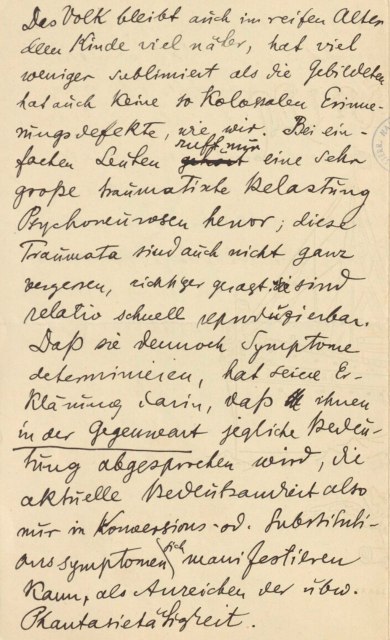 Das Volk bleibt auch im reifen Alter
dem Kinde viel näher, hat viel
weniger sublimiert als die Gebildeten
hat auch keine so kolossalen Erinne-
rungsdefekte, wie wir. Bei ein-
fachen Leuten ruft nur eine sehr
große traumatische Belastung
Psychoneurosen hervor; diese
Traumata sind auch nicht ganz
vergessen, richtiger gesagt sie sind
relativ schnell reproduzierbar.
Daß sie dennoch Symptome
determinieren, hat seine Er-
klärung darin, daß ihnen
in der Gegenwart jegliche Bedeu-
tung abgesprochen wird, die
aktuelle Bedeutsamkeit also
nur in Konversions- od. Substituti-
onssymptomen sich manifestieren
kann, als Anzeichen der ubw.
Phantasietätigkeit.